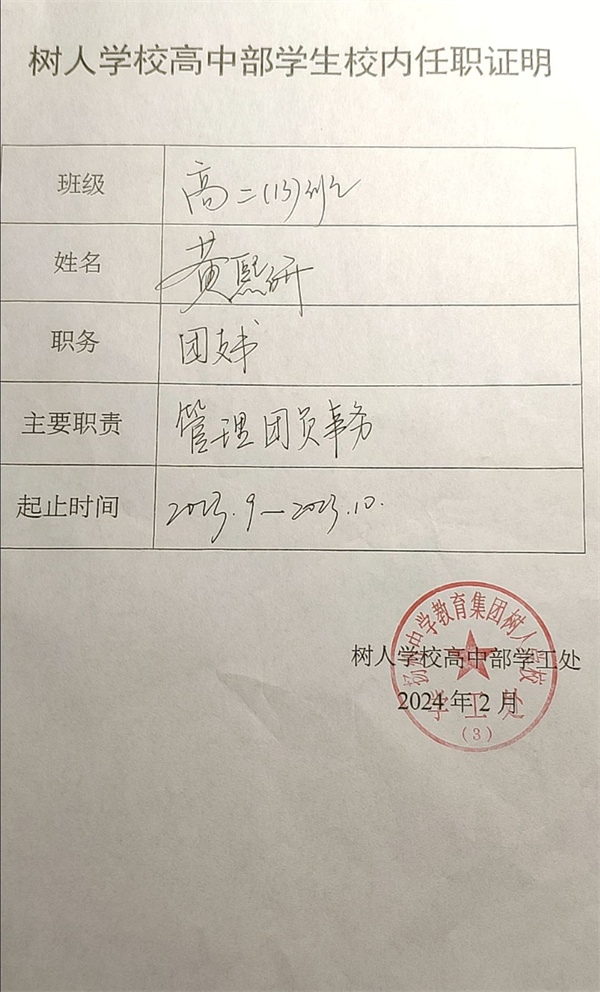 树人学校高中部学生校内任职证明
班级 高二(13)班
姓名 黄熙研
职务 团支书
主要职责 管理团员事务
起止时间 2023.9—2023.10.
扬州中学教育集团树人学校
树人学校高中部学工处
2024年2月
学工处
(3)